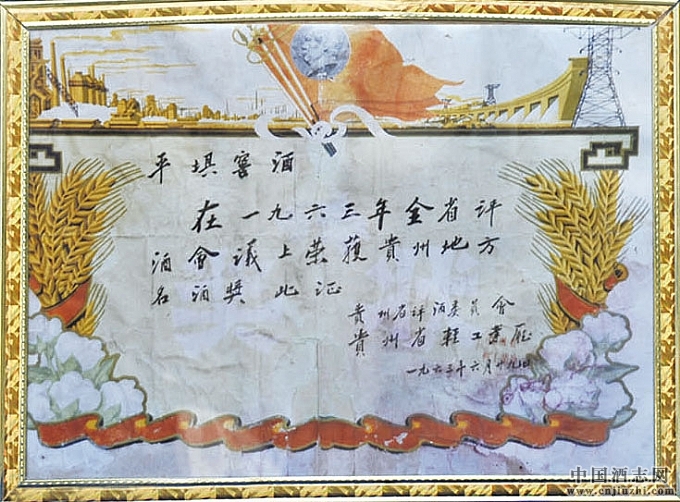 平垻窖酒
在一九六三年全省评
酒會議上荣获貴州地方
名酒獎此证
贵州省评酒委员会
贵州省輕工業厅
一九六三年六月廿九日
中国酒志网
www.cnjiuzhi.com